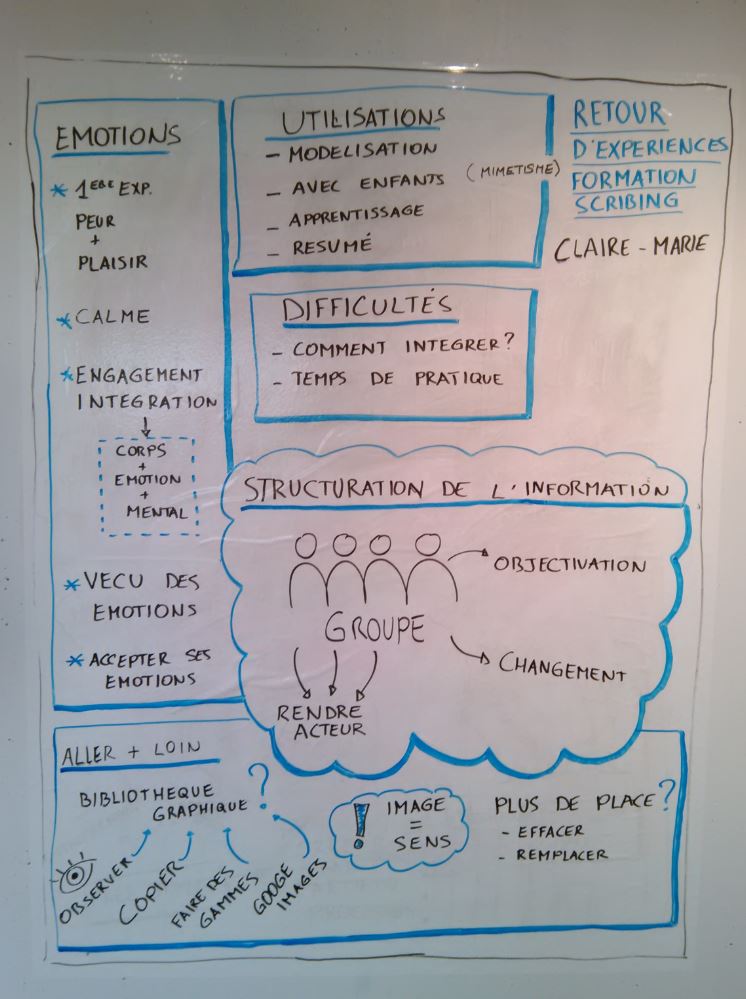 RETOUR
D'EXPERIENCES
FORMATION
SCRIBING
CLAIRE - MARIE
EMOTIONS
* 1EBE EXP.
PEUR
+
PLAISIR
* CALME
* ENGAGEMENT
INTEGRATION
CORPS
+
EMOTION
+
MENTAL
* VECU DES
EMOTIONS
* ACCEPTER SES
EMOTIONS
UTILISATIONS
- MODELISATION
- AVEC ENFANTS (MIMETISME)
- APPRENTISSAGE
- RESUMÉ
DIFFICULTÉS
- COMMENT INTEGRER?
- TEMPS DE PRATIQUE
STRUCTURATION DE L'INFORMATION
OBJECTIVATION
GROUPE
CHANGEMENT
RENDRE
ACTEUR
ALLER + LOIN
BIBLIOTHEQUE
GRAPHIQUE ?
OBSERVER
COPIER
FAIRE DES
GAMMES
GOOGE
IMAGES
! IMAGE
=
SENS
PLUS DE PLACE ?
- EFFACER
- REMPLACER